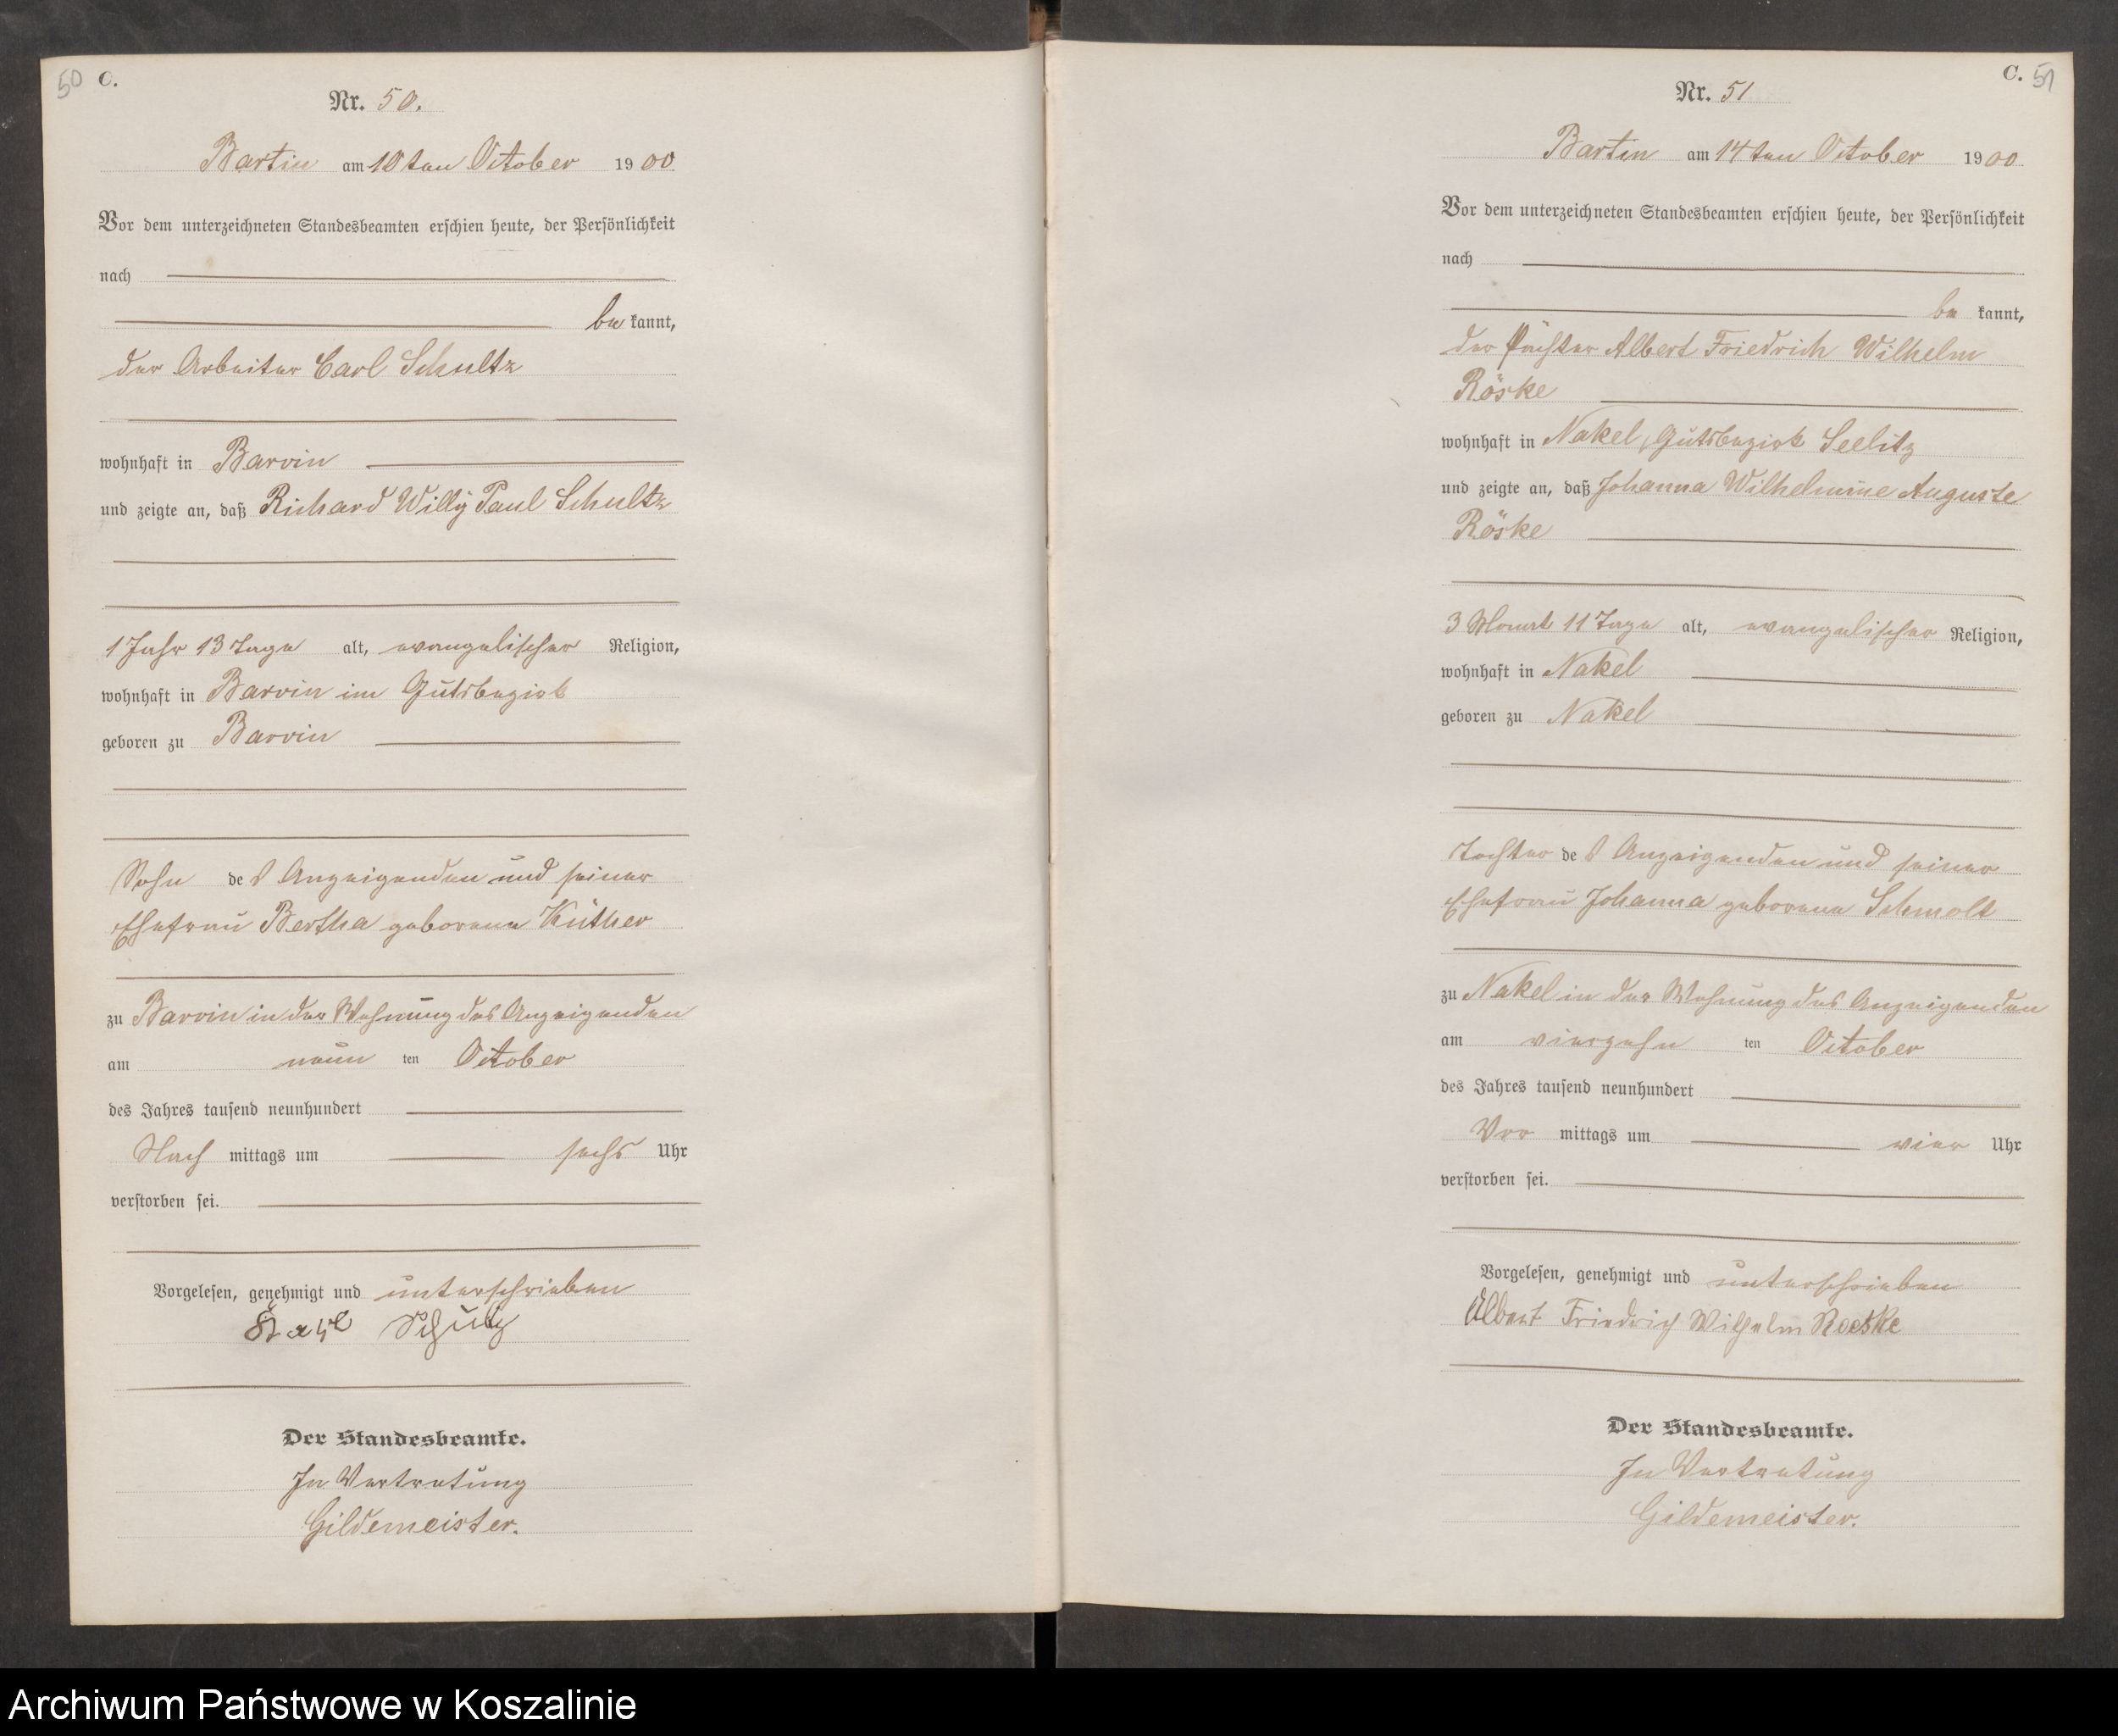 50 C.
Nr. 50.
Bartin am 10ten October 1900
Vor dem unterzeichneten Standesbeamten erschien heute, der Persönlichkeit
nach
be kannt,
der Arbeiter Carl Schultz
wohnhaft in Barvin
und zeigte an, daß Richard Willÿ Paul Schultz
1 Jahr 13 Tage alt, evangelischer Religion,
wohnhaft in Barvin im Gutsbezirk
geboren zu Barvin
Sohn des Anzeigenden und seiner
Ehefrau Bertha geborene Küther
zu Barvin in der Wohnung des Anzeigenden
am neun ten October
des Jahres tausend neunhundert
Nach mittags um sechs Uhr
verstorben sei.
Vorgelesen, genehmigt und unterschrieben
Karl Schultz
Der Standesbeamte.
In Vertretung
Gildemeister.
C. 51
Nr. 51
Bartin am 14ten October 1900
Vor dem unterzeichneten Standesbeamten erschien heute, der Persönlichkeit
nach
be kannt,
der Albert Friedrich Wilhelm
Röske
wohnhaft in Nakel, Gutsbezirk Seelitz
und zeigte an, daß Johanna Wilhelmine Auguste
Röske
3 Monat 11 Tage alt, evangelischer Religion,
wohnhaft in Nakel
geboren zu Nakel
Tochter des Anzeigenden und seiner
Ehefrau Johanna geborene Schmolt
zu Nakel in der Wohnung des Anzeigenden
am vierzehn ten October
des Jahres tausend neunhundert
Vor mittags um vier Uhr
verstorben sei.
Vorgelesen, genehmigt und unterschrieben
Albert Friedrich Wilhelm Roeske
Der Standesbeamte.
In Vertretung
Gildemeister.
Archiwum Państwowe w Koszalinie